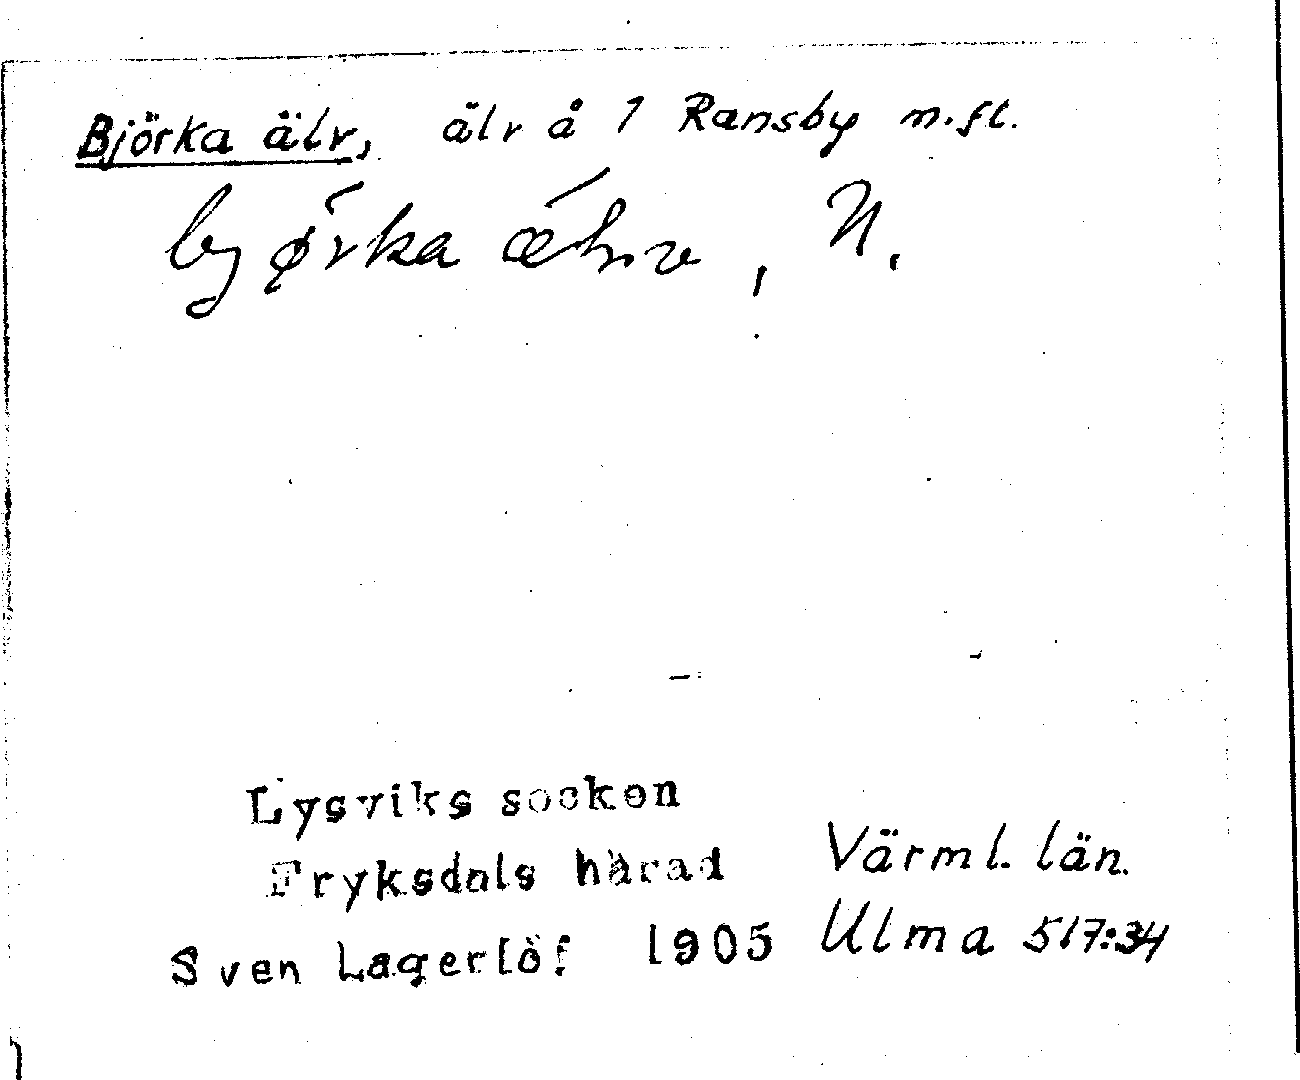 Björka älv, älv å 1 Ransby m.fl.
bjǿrka
, N.
Lysviks socken
Fryksdals härad Värml. län.
Sven Lagerlöf 1905 Ulma 517:34